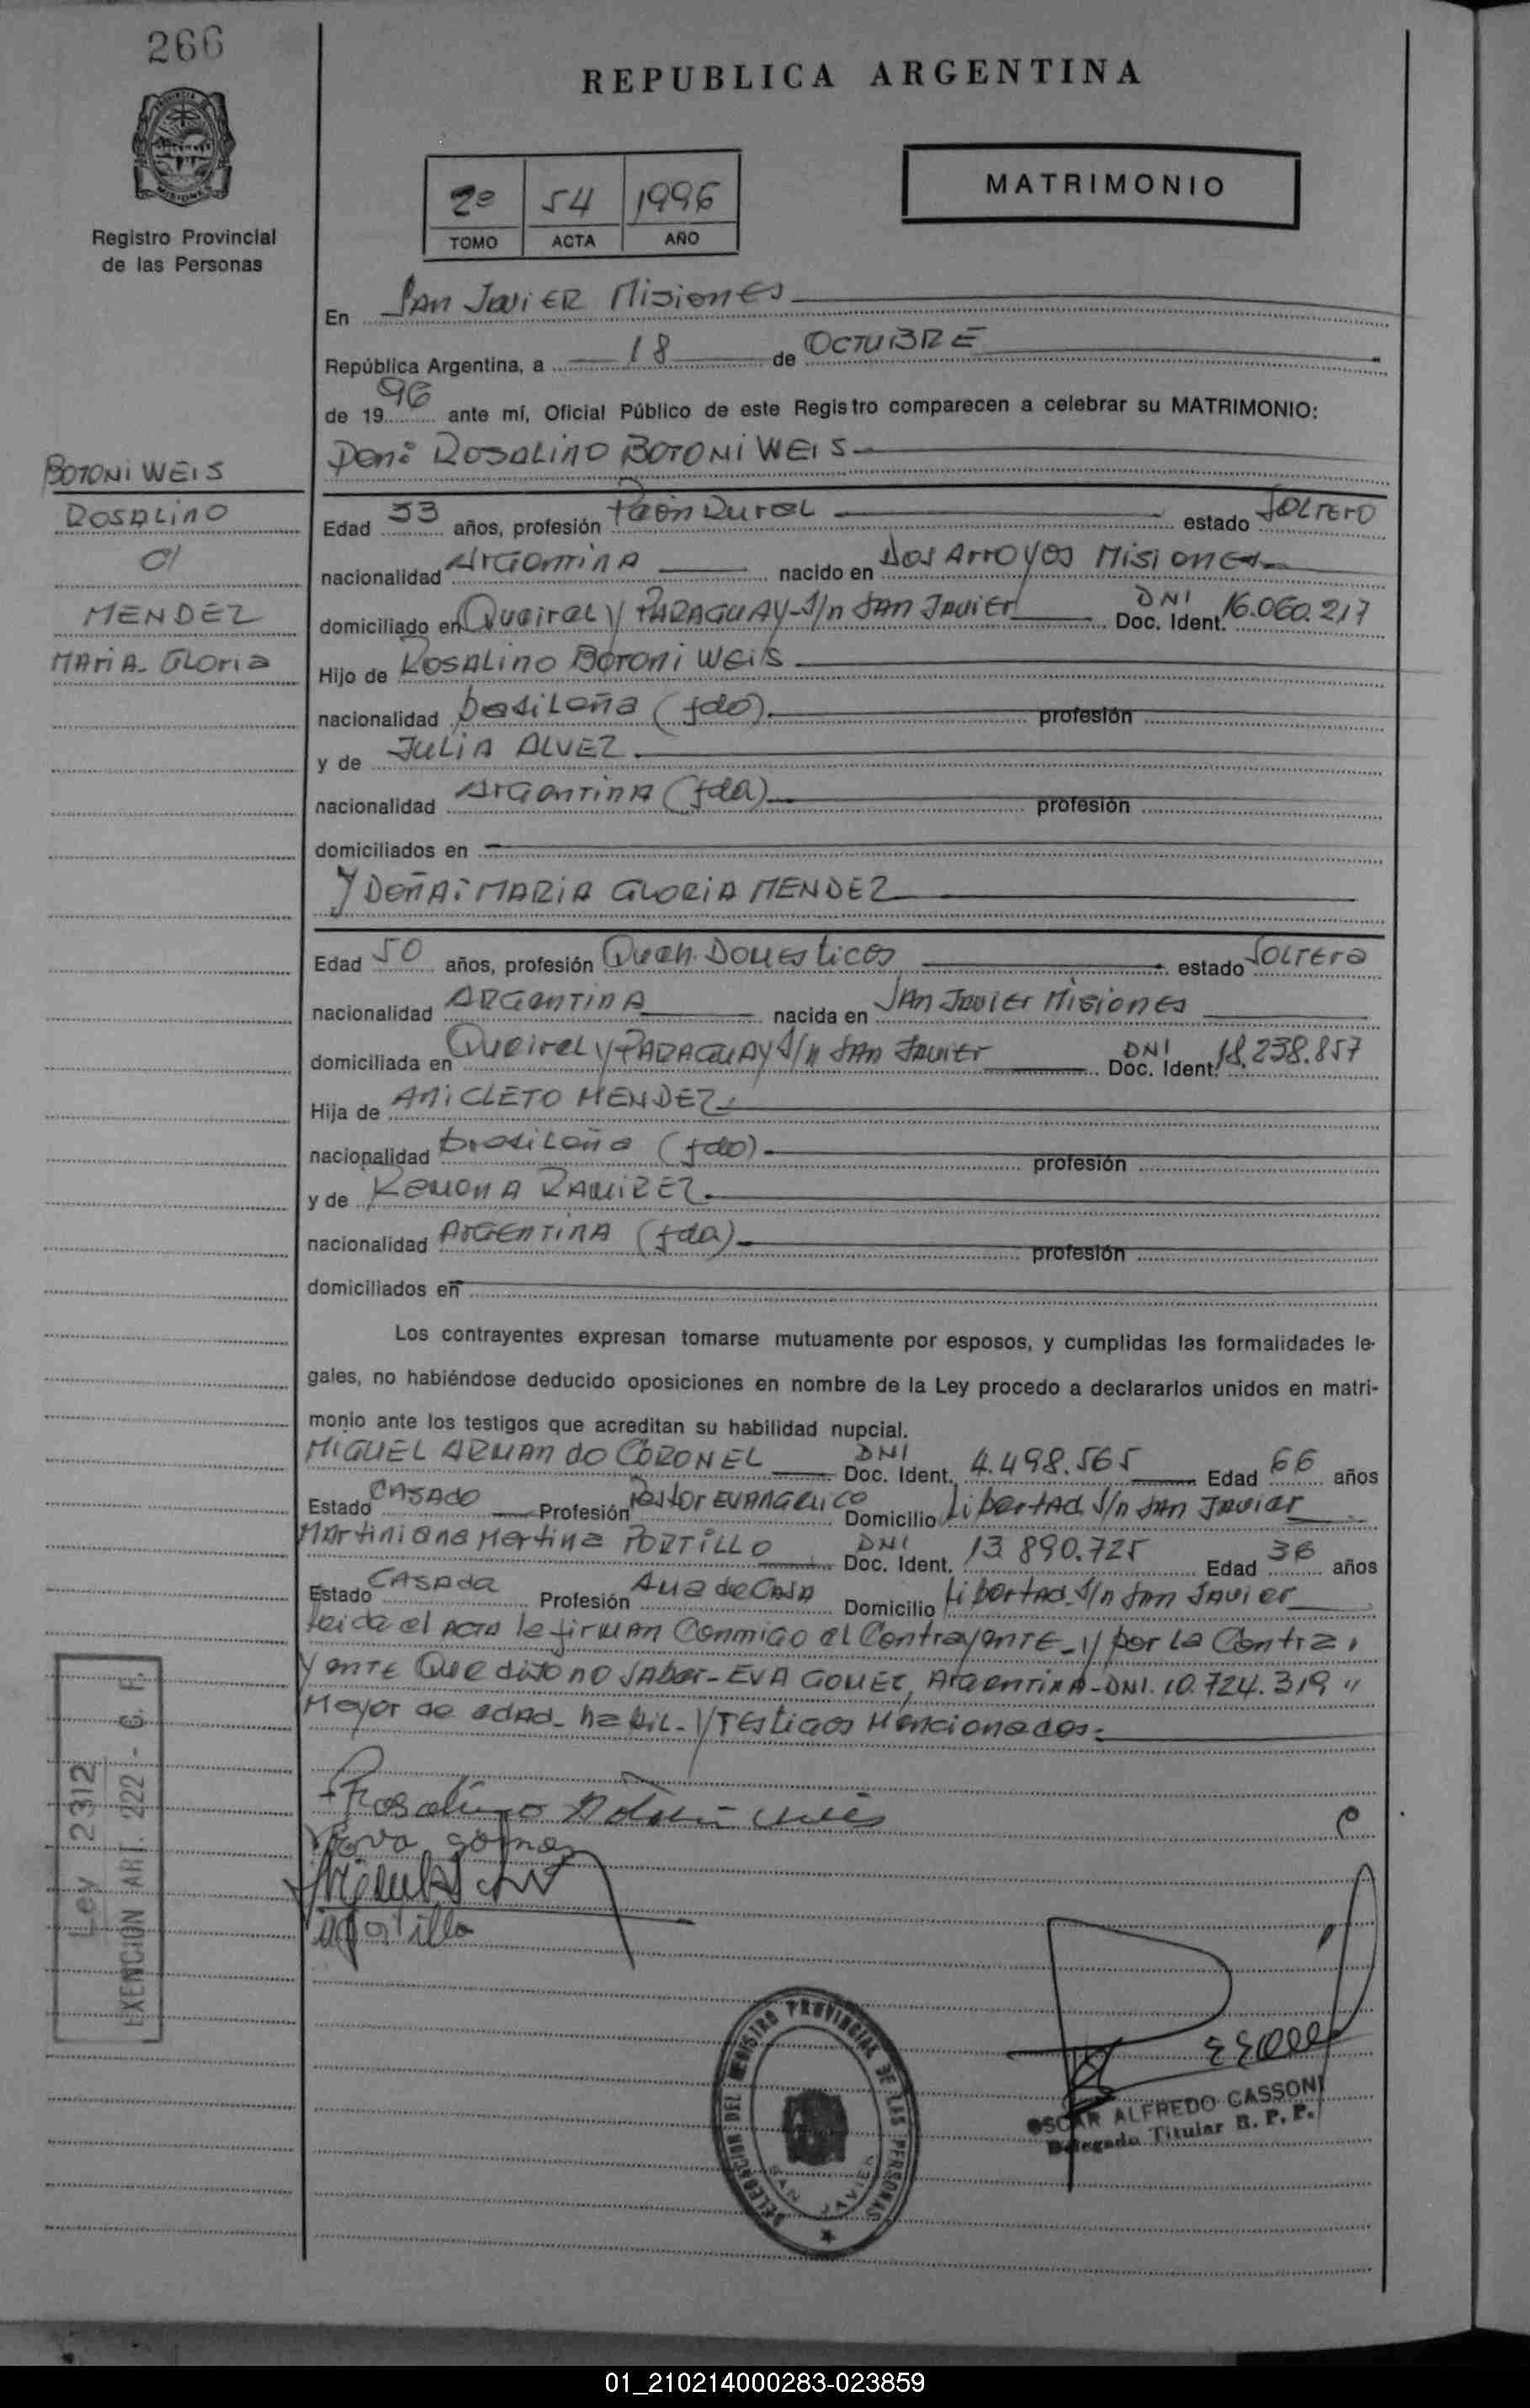 266
REPUBLICA ARGENTINA
MATRIMONIO
2º 54 1996
TOMO ACTA AÑO
Registro Provincial
de las Personas
En San Javier Misiones
República Argentina, a 18 de OCTUBRE
de 1996 ante mí, Oficial Público de este Registro comparecen a celebrar su MATRIMONIO:
Don: ROSALINO BOTONI WEIS
BOTONI WEIS
ROSALINO
C/
MENDEZ
MARIA GLORIA
Edad 33 años, profesión Peón Rural estado SOLTERO
nacionalidad Argentina nacido en Dos Arroyos Misiones
domiciliado en Queirel y PARAGUAY S/n San Javier DNI Doc. Ident. 16.060.217
Hijo de ROSALINO BOTONI WEIS
nacionalidad brasileña (fdo). profesión
y de JULIA ALVEZ
nacionalidad Argentina (fda) profesión
domiciliados en
Y DOÑA: MARIA GLORIA MENDEZ
Edad 50 años, profesión Queh. Domesticos estado SOLTERA
nacionalidad ARGENTINA nacida en San Javier Misiones
domiciliada en Queirel y PARAGUAY S/n San Javier DNI Doc. Ident. 18.238.857
Hija de ANICLETO MENDEZ
nacionalidad brasileña (fdo) profesión
y de Ramona RAMIREZ
nacionalidad ARGENTINA (fda) profesión
domiciliados en
Los contrayentes expresan tomarse mutuamente por esposos, y cumplidas las formalidades le-
gales, no habiéndose deducido oposiciones en nombre de la Ley procedo a declararlos unidos en matri-
monio ante los testigos que acreditan su habilidad nupcial.
MIGUEL ARMANDO CORONEL DNI Doc. Ident. 4.498.565 Edad 66 años
Estado CASADO Profesión Pastor EVANGELICO Domicilio Libertad S/n San Javier
Martiniana Martina PORTILLO DNI Doc. Ident. 13 890.725 Edad 36 años
Estado CASADA Profesión Ama de Casa Domicilio Libertad S/n San Javier
leida el Acta la firman Conmigo el Contrayente y por la Contra
yente Que dijo no saber - EVA GOMEZ, Argentina - DNI. 10.724.319 "
Mayor de edad - habil - y Testigos Mencionados.-
Rosalino Botoni Weis
Eva gomez
MPortillo
Ley 2312
EXENCION ART. 222 - C. F.
DELEGACION DEL REGISTRO PROVINCIAL DE LAS PERSONAS
SAN JAVIER
OSCAR ALFREDO CASSONI
Delegado Titular R. P. P.
01_210214000283-023859